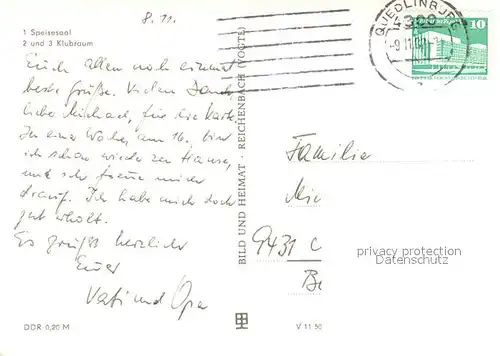 8. 11.
1 Speisesaal
2 und 3 Klubraum
Euch allen noch einmal
beste Grüße. Vielen Dank,
lieber Michael, für die Karte.
In einer Woche, am 16. bin
ich schon wieder zu Hause,
und ich freue mich
drauf. Ich habe mich doch
gut erholt.
Es grüßt herzlich
Euer
Vati und Opa
DDR 0,20 M
BILD UND HEIMAT · REICHENBACH (VOGTL)
V 11 50
QUEDLINBURG
-9.11.
10
Familie
Mic
9431 C
privacy protection
Datenschutz